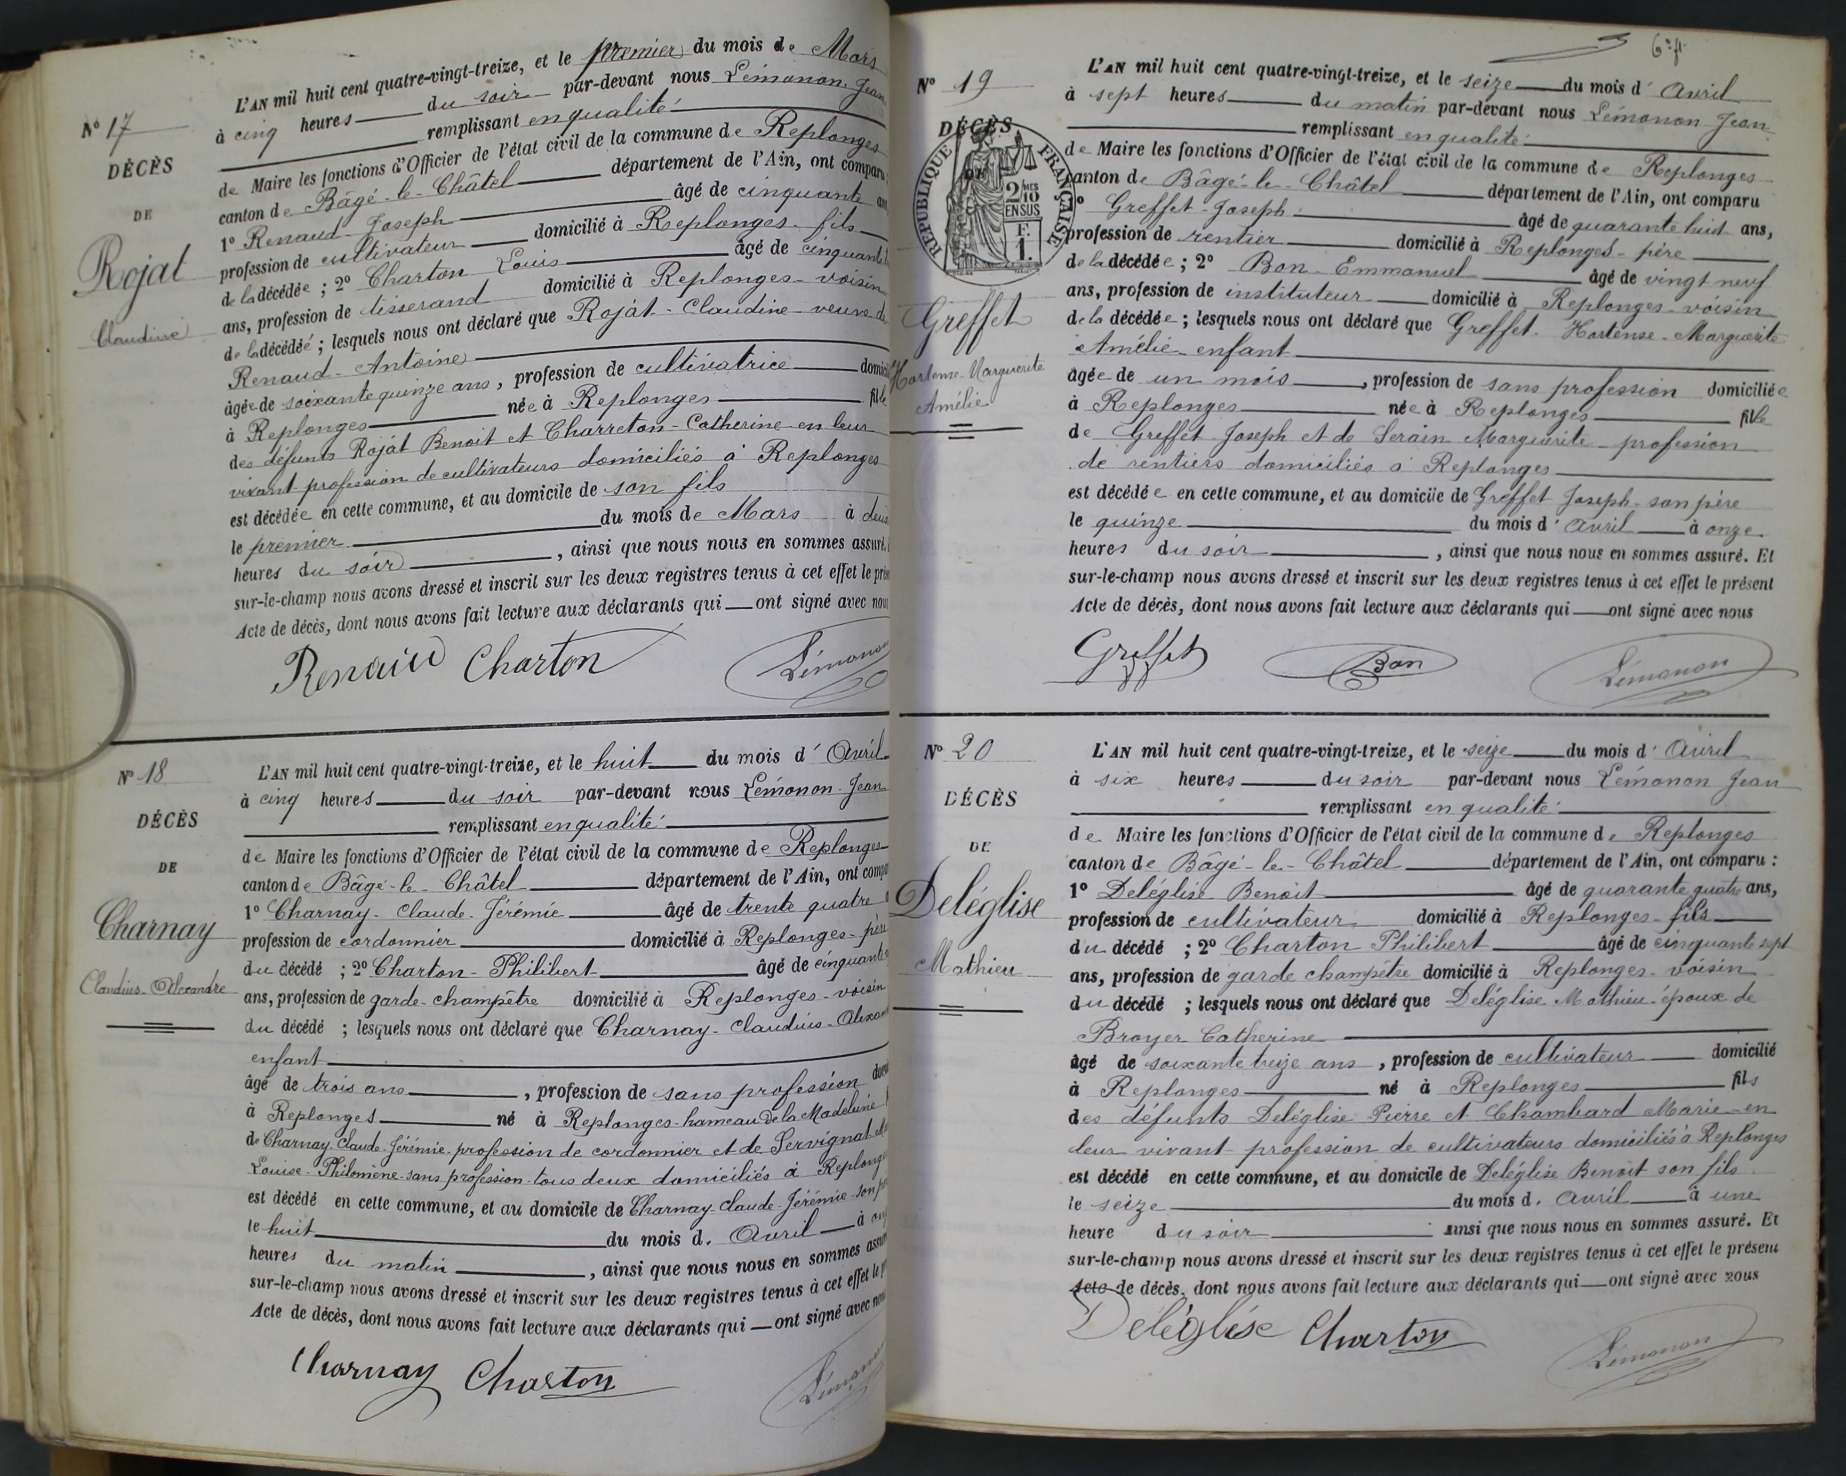 Nº 17
DÉCÈS
DE
Rojat
Claudine
L'AN mil huit cent quatre-vingt-treize, et le premier du mois de Mars
à cinq heures du soir par-devant nous Lémonon Jean
remplissant en qualité
de Maire les fonctions d'Officier de l'état civil de la commune de Replonges
canton de Bâgé-le-Châtel département de l'Ain, ont comparu
1º Renaud Joseph âgé de cinquante ans
profession de cultivateur domicilié à Replonges fils
de la décédée ; 2º Charton Louis âgé de cinquante
ans, profession de tisserand domicilié à Replonges voisin
de la décédée ; lesquels nous ont déclaré que Rojat Claudine veuve de
Renaud Antoine
âgée de soixante quinze ans, profession de cultivatrice domici
à Replonges née à Replonges fille
des défunts Rojat Benoit et Charreton Catherine en leur
vivant profession de cultivateurs domiciliés à Replonges
est décédée en cette commune, et au domicile de son fils
le premier du mois de Mars à deux
heures du soir, ainsi que nous nous en sommes assuré.
sur-le-champ nous avons dressé et inscrit sur les deux registres tenus à cet effet le prés
Acte de décès, dont nous avons fait lecture aux déclarants qui ont signé avec nous
Renaud Charton Lémonon
Nº 18
DÉCÈS
DE
Charnay
Claudius-Alexandre
L'AN mil huit cent quatre-vingt-treize, et le huit du mois d' Avril
à cinq heures du soir par-devant nous Lémonon Jean
remplissant en qualité
de Maire les fonctions d'Officier de l'état civil de la commune de Replonges
canton de Bâgé-le-Châtel département de l'Ain, ont compa
1º Charnay Claude Jérémie âgé de trente quatre
profession de cordonnier domicilié à Replonges père
du décédé ; 2º Charton Philibert âgé de cinquante
ans, profession de garde-champêtre domicilié à Replonges voisin
du décédé ; lesquels nous ont déclaré que Charnay Claudius Alexan
enfant
âgé de trois ans, profession de sans profession dom
à Replonges né à Replonges hameau de la Madeleine
de Charnay Claude Jérémie profession de cordonnier et de Servignat
Louise-Philomène sans profession tous deux domiciliés à Replonges
est décédé en cette commune, et au domicile de Charnay Claude Jérémie son
le huit du mois d. Avril à
heures du matin, ainsi que nous nous en sommes assuré
sur-le-champ nous avons dressé et inscrit sur les deux registres tenus à cet effet le
Acte de décès, dont nous avons fait lecture aux déclarants qui ont signé avec nous
Charnay Charton Lémonon
Nº 19
DÉCÈS
DE
RÉPUBLIQUE FRANÇAISE
2/10 MES
EN SUS
F.
1.
Greffet
Hortense-Marguerite
Amélie
L'AN mil huit cent quatre-vingt-treize, et le seize du mois d' Avril
à sept heures du matin par-devant nous Lémonon Jean
remplissant en qualité
de Maire les fonctions d'Officier de l'état civil de la commune de Replonges
canton de Bâgé-le-Châtel département de l'Ain, ont comparu
º Greffet Joseph âgé de quarante huit ans,
profession de rentier domicilié à Replonges père
de la décédée ; 2º Bon Emmanuel âgé de vingt neuf
ans, profession de instituteur domicilié à Replonges voisin
de la décédée ; lesquels nous ont déclaré que Greffet Hortense Marguerite
Amélie enfant
âgée de un mois, profession de sans profession domiciliée
à Replonges née à Replonges fille
de Greffet Joseph et de Serain Marguerite profession
de rentiers domiciliés à Replonges
est décédée en cette commune, et au domicile de Greffet Joseph son père
le quinze du mois d' Avril à onze
heures du soir, ainsi que nous nous en sommes assuré. Et
sur-le-champ nous avons dressé et inscrit sur les deux registres tenus à cet effet le présent
Acte de décès, dont nous avons fait lecture aux déclarants qui ont signé avec nous
Greffet Bon Lémonon
Nº 20
DÉCÈS
DE
Deléglise
Mathieu
L'AN mil huit cent quatre-vingt-treize, et le seize du mois d' Avril
à six heures du soir par-devant nous Lémonon Jean
remplissant en qualité
de Maire les fonctions d'Officier de l'état civil de la commune de Replonges
canton de Bâgé-le-Châtel département de l'Ain, ont comparu :
1º Deléglise Benoit âgé de quarante quatre ans,
profession de cultivateur domicilié à Replonges fils
du décédé ; 2º Charton Philibert âgé de cinquante sept
ans, profession de garde champêtre domicilié à Replonges voisin
du décédé ; lesquels nous ont déclaré que Deléglise Mathieu époux de
Broyer Catherine
âgé de soixante treize ans, profession de cultivateur domicilié
à Replonges né à Replonges fils
des défunts Deléglise Pierre et Chambard Marie en
leur vivant profession de cultivateurs domiciliés à Replonges
est décédé en cette commune, et au domicile de Deléglise Benoit son fils
le seize du mois d. Avril à une
heure du soir ainsi que nous nous en sommes assuré. Et
sur-le-champ nous avons dressé et inscrit sur les deux registres tenus à cet effet le présent
Acte de décès, dont nous avons fait lecture aux déclarants qui ont signé avec nous
Deléglise Charton Lémonon